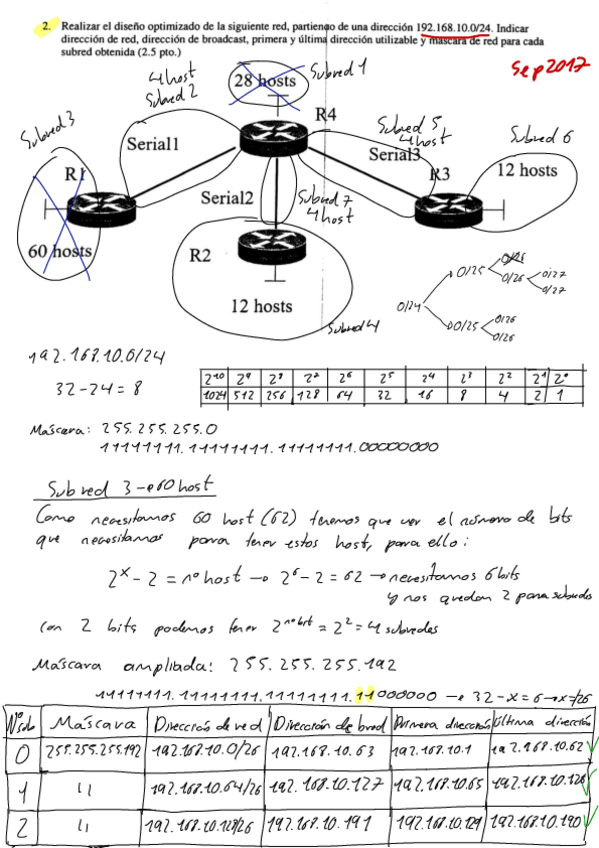 2. Realizar el diseño optimizado de la siguiente red, partiendo de una dirección 192.168.10.0/24. Indicar
dirección de red, dirección de broadcast, primera y última dirección utilizable y máscara de red para cada
subred obtenida (2.5 pto.)
Sep2017
4 host
Subred 2
28 hosts
Subred 1
R4
Subred 3
Serial1
Subred 5
4 host
Serial3
Subred 6
R1
R3
12 hosts
Serial2
Subred 7
4 host
60 hosts
R2
12 hosts
Subred 4
0/24
0/25
0/26
0/26
0/27
0/27
0/25
0/26
0/26
192.168.10.0/24
32-24=8
2^10 2^9 2^8 2^7 2^6 2^5 2^4 2^3 2^2 2^1 2^0
1024 512 256 128 64 32 16 8 4 2 1
Máscara: 255.255.255.0
11111111.11111111.11111111.00000000
Subred 3 → 60 host
Como necesitamos 60 host (62) tenemos que ver el número de bits
que necesitamos para tener estos host, para ello:
2^x - 2 = nº host → 2^6 - 2 = 62 → necesitamos 6 bits
y nos quedan 2 para subredes
Con 2 bits podemos tener 2^nº bit = 2^2 = 4 subredes
Máscara ampliada: 255.255.255.192
11111111.11111111.11111111.11000000 → 32-x=6→x=/26
Nº sub Máscara Dirección de red Dirección de broad Primera dirección Última dirección
0 255.255.255.192 192.168.10.0/26 192.168.10.63 192.168.10.1 192.168.10.62 ✓
1 " 192.168.10.64/26 192.168.10.127 192.168.10.65 192.168.10.126 ✓
2 " 192.168.10.128/26 192.168.10.191 192.168.10.129 192.168.10.190 ✓